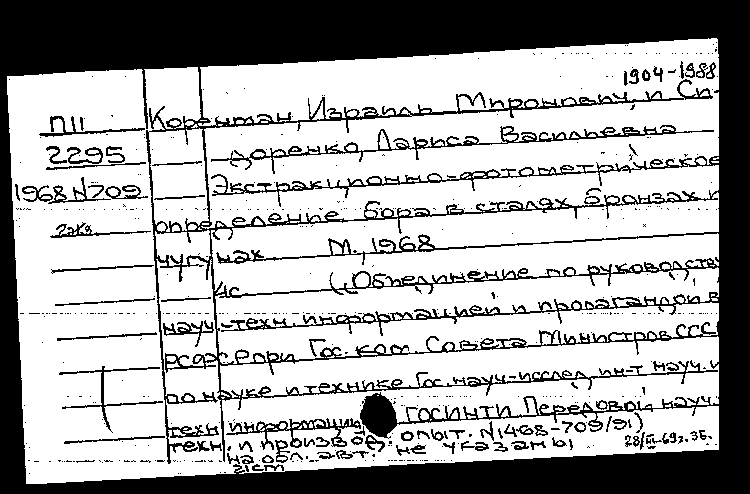 1904-1988
П11 Коренман, Израиль Миронович, и Си-
2295 доренко, Лариса Васильевна
1968 N709 Экстракционно-фотометрическое
2экз. определение бора в сталях, бронзах и
чугунах. М., 1968
4с. («Объединение по руководству
науч.-техн. информацией и пропагандой в
РСФСР при Гос. ком. Совета Министров СССР
по науке и технике Гос. науч-исслед. ин-т науч. и
техн. информации ГОСИНТИ Передовой науч.-
техн. и производ. опыт. N1468-709/91)
на обл. авт. не указаны
28/III-69г.